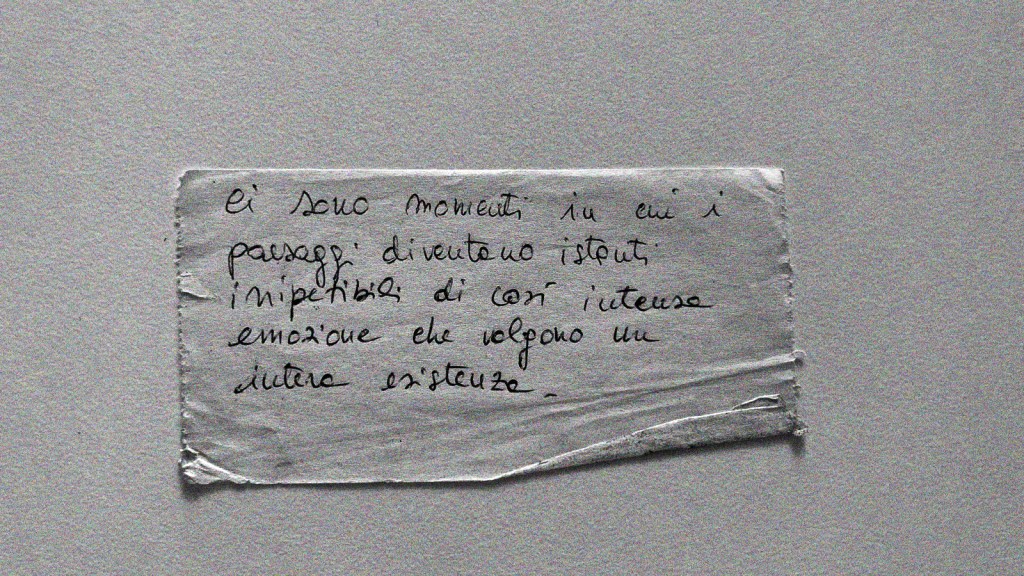 Ci sono momenti in cui i
paesaggi diventano istanti
irripetibili di così intensa
emozione che valgono un
intera esistenza.